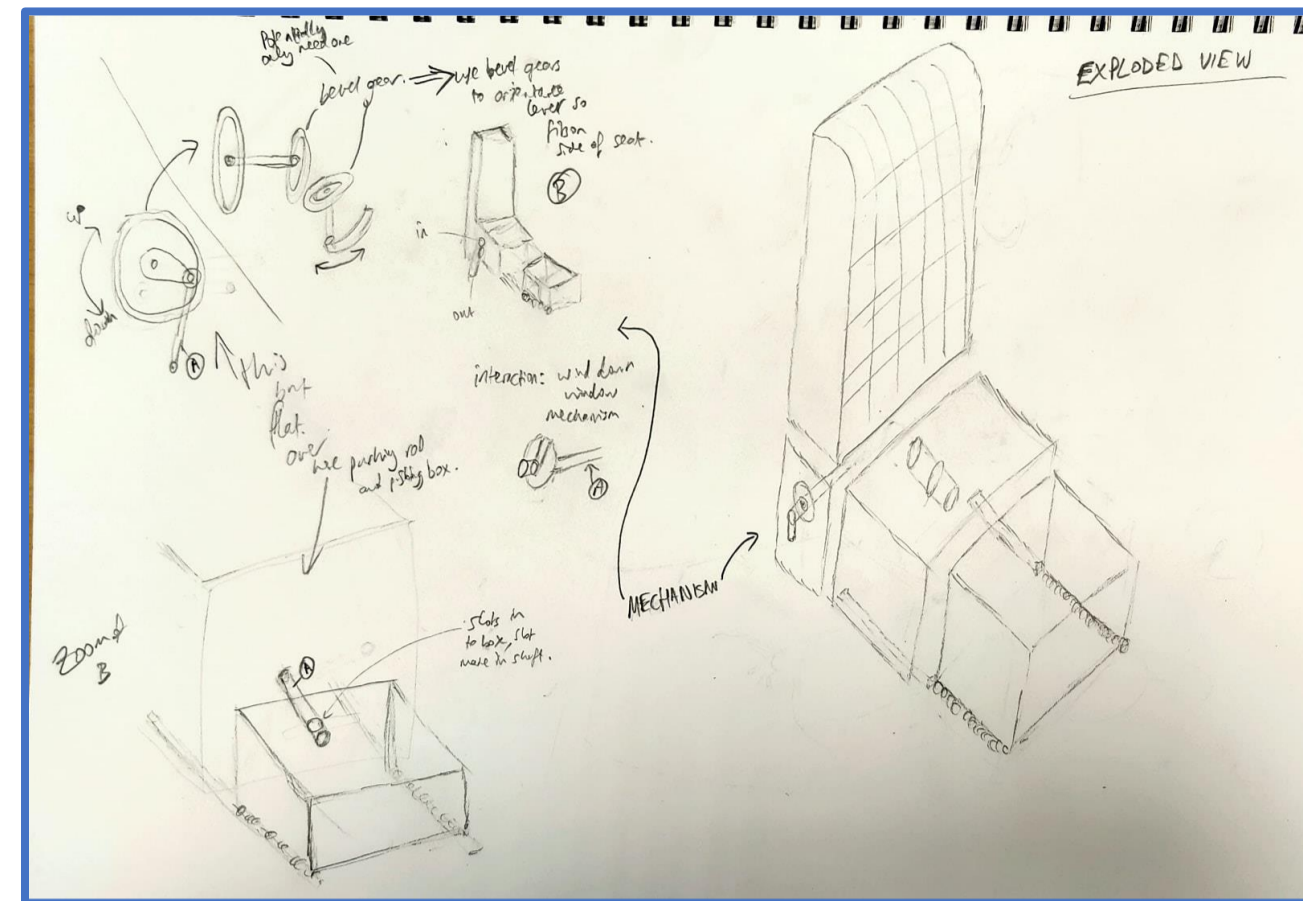 Potentially
only need one
bevel gear.
use bevel gears
to orientate
lever so
side of seat.
B
up
down
A
in
out
this
but
flat.
over
pushing rod
and pushing box.
interaction: wind down
window
mechanism
A
MECHANISM
Zoomed
B
A
slots in
to box, slot
move in shaft.
EXPLODED VIEW